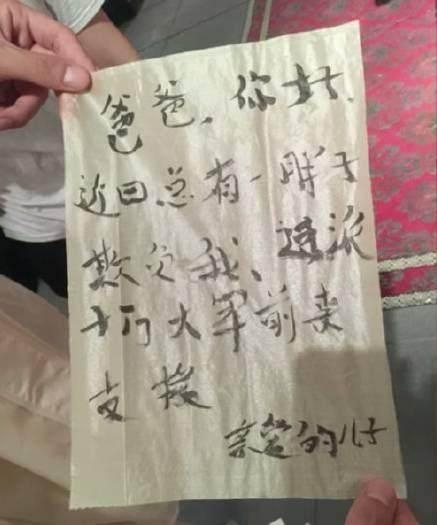 爸爸，你好.
近日总有一胖子
欺负我、速派
十万大军前来
支援
亲爱的儿子